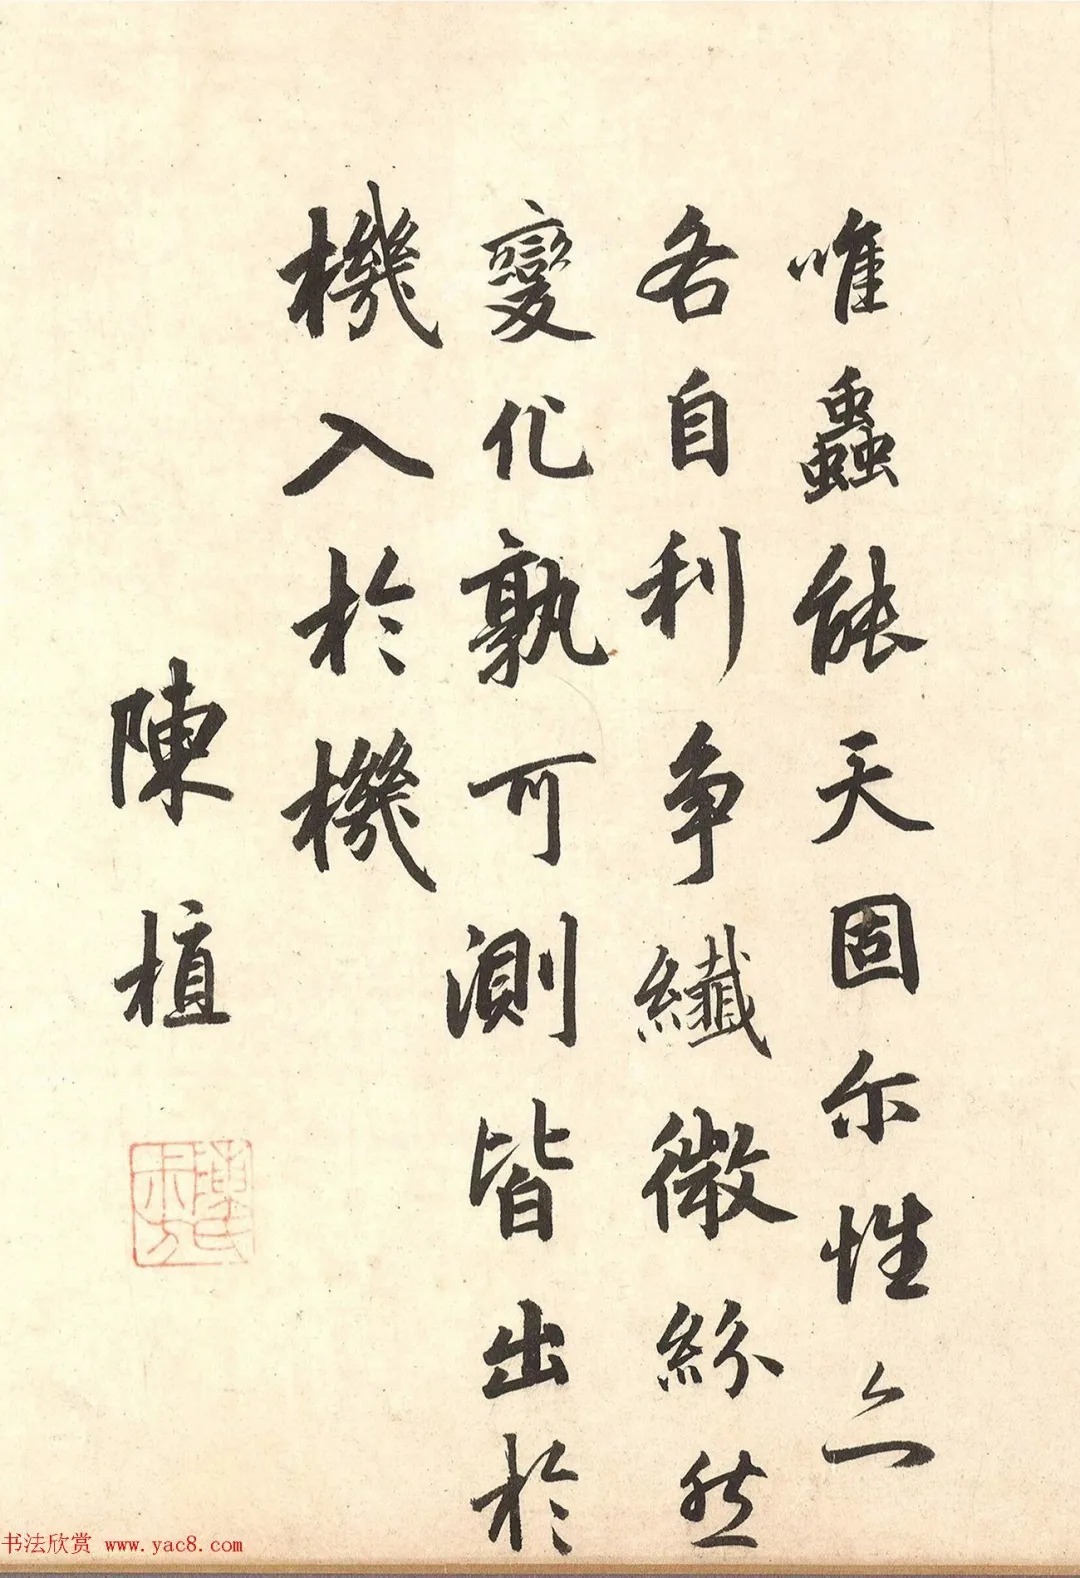 唯蟲能天固尔性命
各自利争纖微紛然
變化孰可測皆出於
機入於機
陳植
陳氏叔方
书法欣赏 www.yac8.com